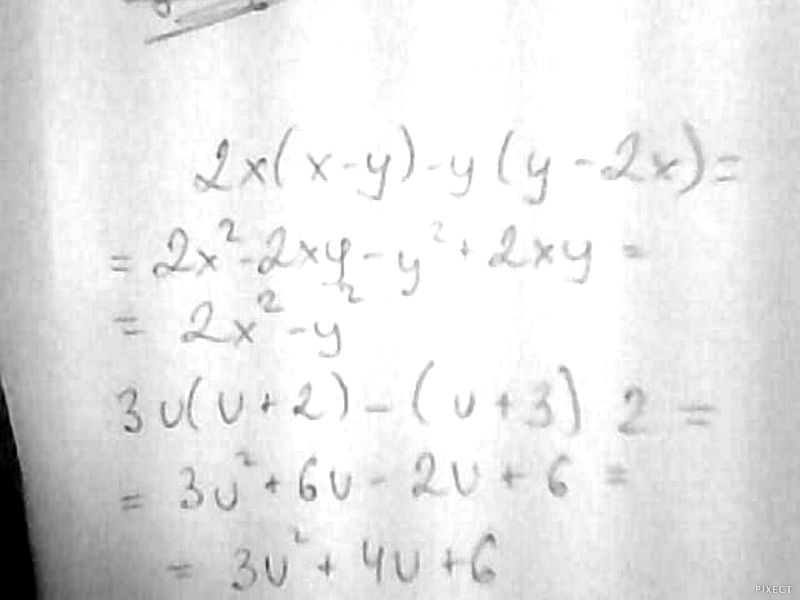 2x(x-y)-y(y-2x)=
= 2x²-2xy-y²+2xy =
= 2x²-y²
3u(u+2)-(u+3) 2 =
= 3u²+6u-2u+6 =
= 3u²+4u+6
PIXECT